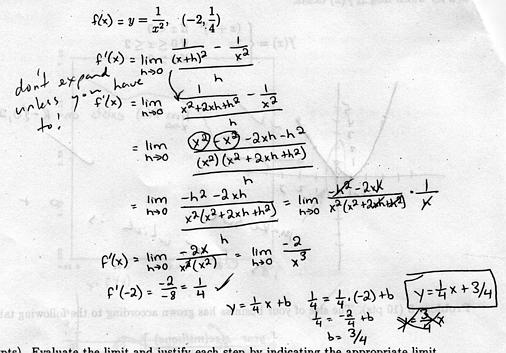 f(x) = y = 1/x², (-2, 1/4)
f'(x) = lim h→0 (1/(x+h)² - 1/x²)/h
don't expand unless you have to!
f'(x) = lim h→0 (1/(x²+2xh+h²) - 1/x²)/h
= lim h→0 ((x² - x² - 2xh - h²)/((x²)(x² + 2xh + h²)))/h
= lim h→0 ((-h² - 2xh)/(x²(x² + 2xh + h²)))/h = lim h→0 (-h² - 2xh)/(x²(x² + 2xh + h²)) · 1/h
f'(x) = lim h→0 -2x/(x²(x²)) = lim h→0 -2/x³
f'(-2) = -2/-8 = 1/4 ✓
y = 1/4 x + b
1/4 = 1/4 · (-2) + b
1/4 = -2/4 + b
b = 3/4
y = 1/4 x + 3/4
nts) Evaluate the limit and justify each step by indicating the appropriate limit